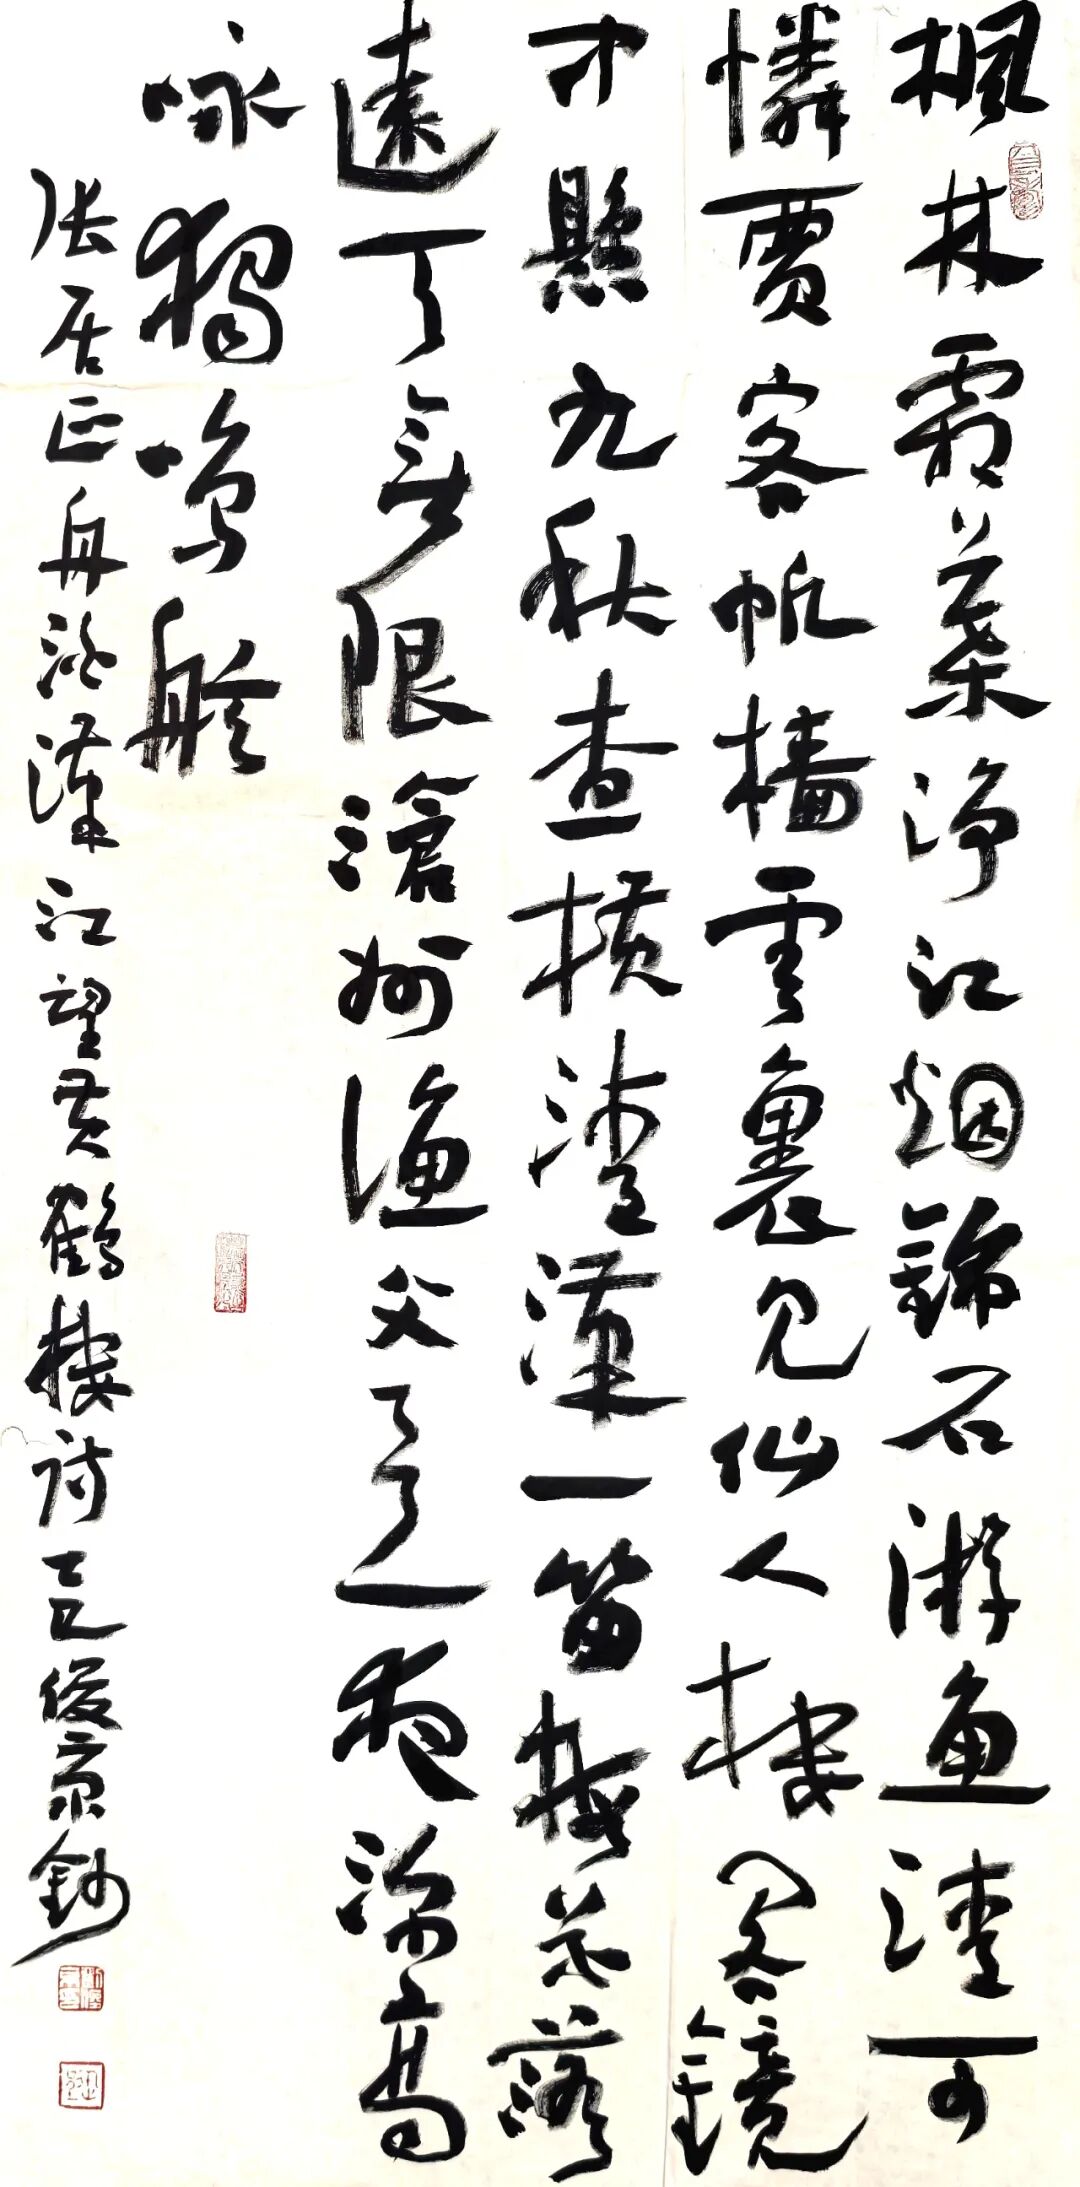 楓林霜葉浄江烟錦石游魚清可
憐賈客帆檣雲裏見仙人樓閣鏡
中懸九秋查横清漢一笛梅花落
遠天無限滄州漁父意夜深高
咏獨鳴舷
張居正舟泊漢江望黄鶴樓詩乙巳俊京鈔